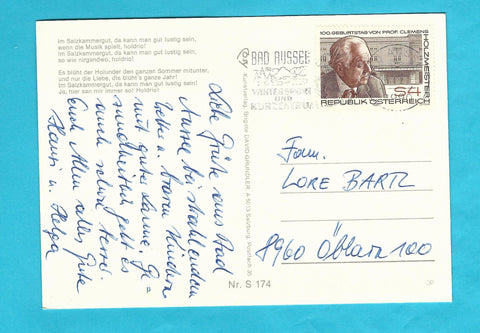 Im Salzkammergut, da kann man gut lustig sein,
wenn die Musik spielt, holdrio!
Im Salzkammergut, da kann man gut lustig sein,
so wie nirgendwo, holdrio!
Es blüht der Holunder den ganzen Sommer mitunter,
und nur die Liebe, die blüht's ganze Jahr!
Im Salzkammergut, da kann man gut lustig sein!
Ja, hier san mir immer so! Holdrio!
Liebe Grüße aus Bad
Aussee bei strahlendem
u. braven Kindern
mit guter Laune. Ge-
sundheitlich geht es
auch schon besser.
Euch Allen alles Gute
Hansi u. Helga
Kunstverlag, Brigitte DAVID-GRUNDLER, A 5013 Salzburg, Postfach 35
Nr. S 174
BAD AUSSEE
WINTERSPORT
UND
KURZENTRUM
100. GEBURTSTAG VON PROF. CLEMENS
HOLZMEISTER
S4
REPUBLIK ÖSTERREICH
Fam.
LORE BARTL
8960 Öblarn 100